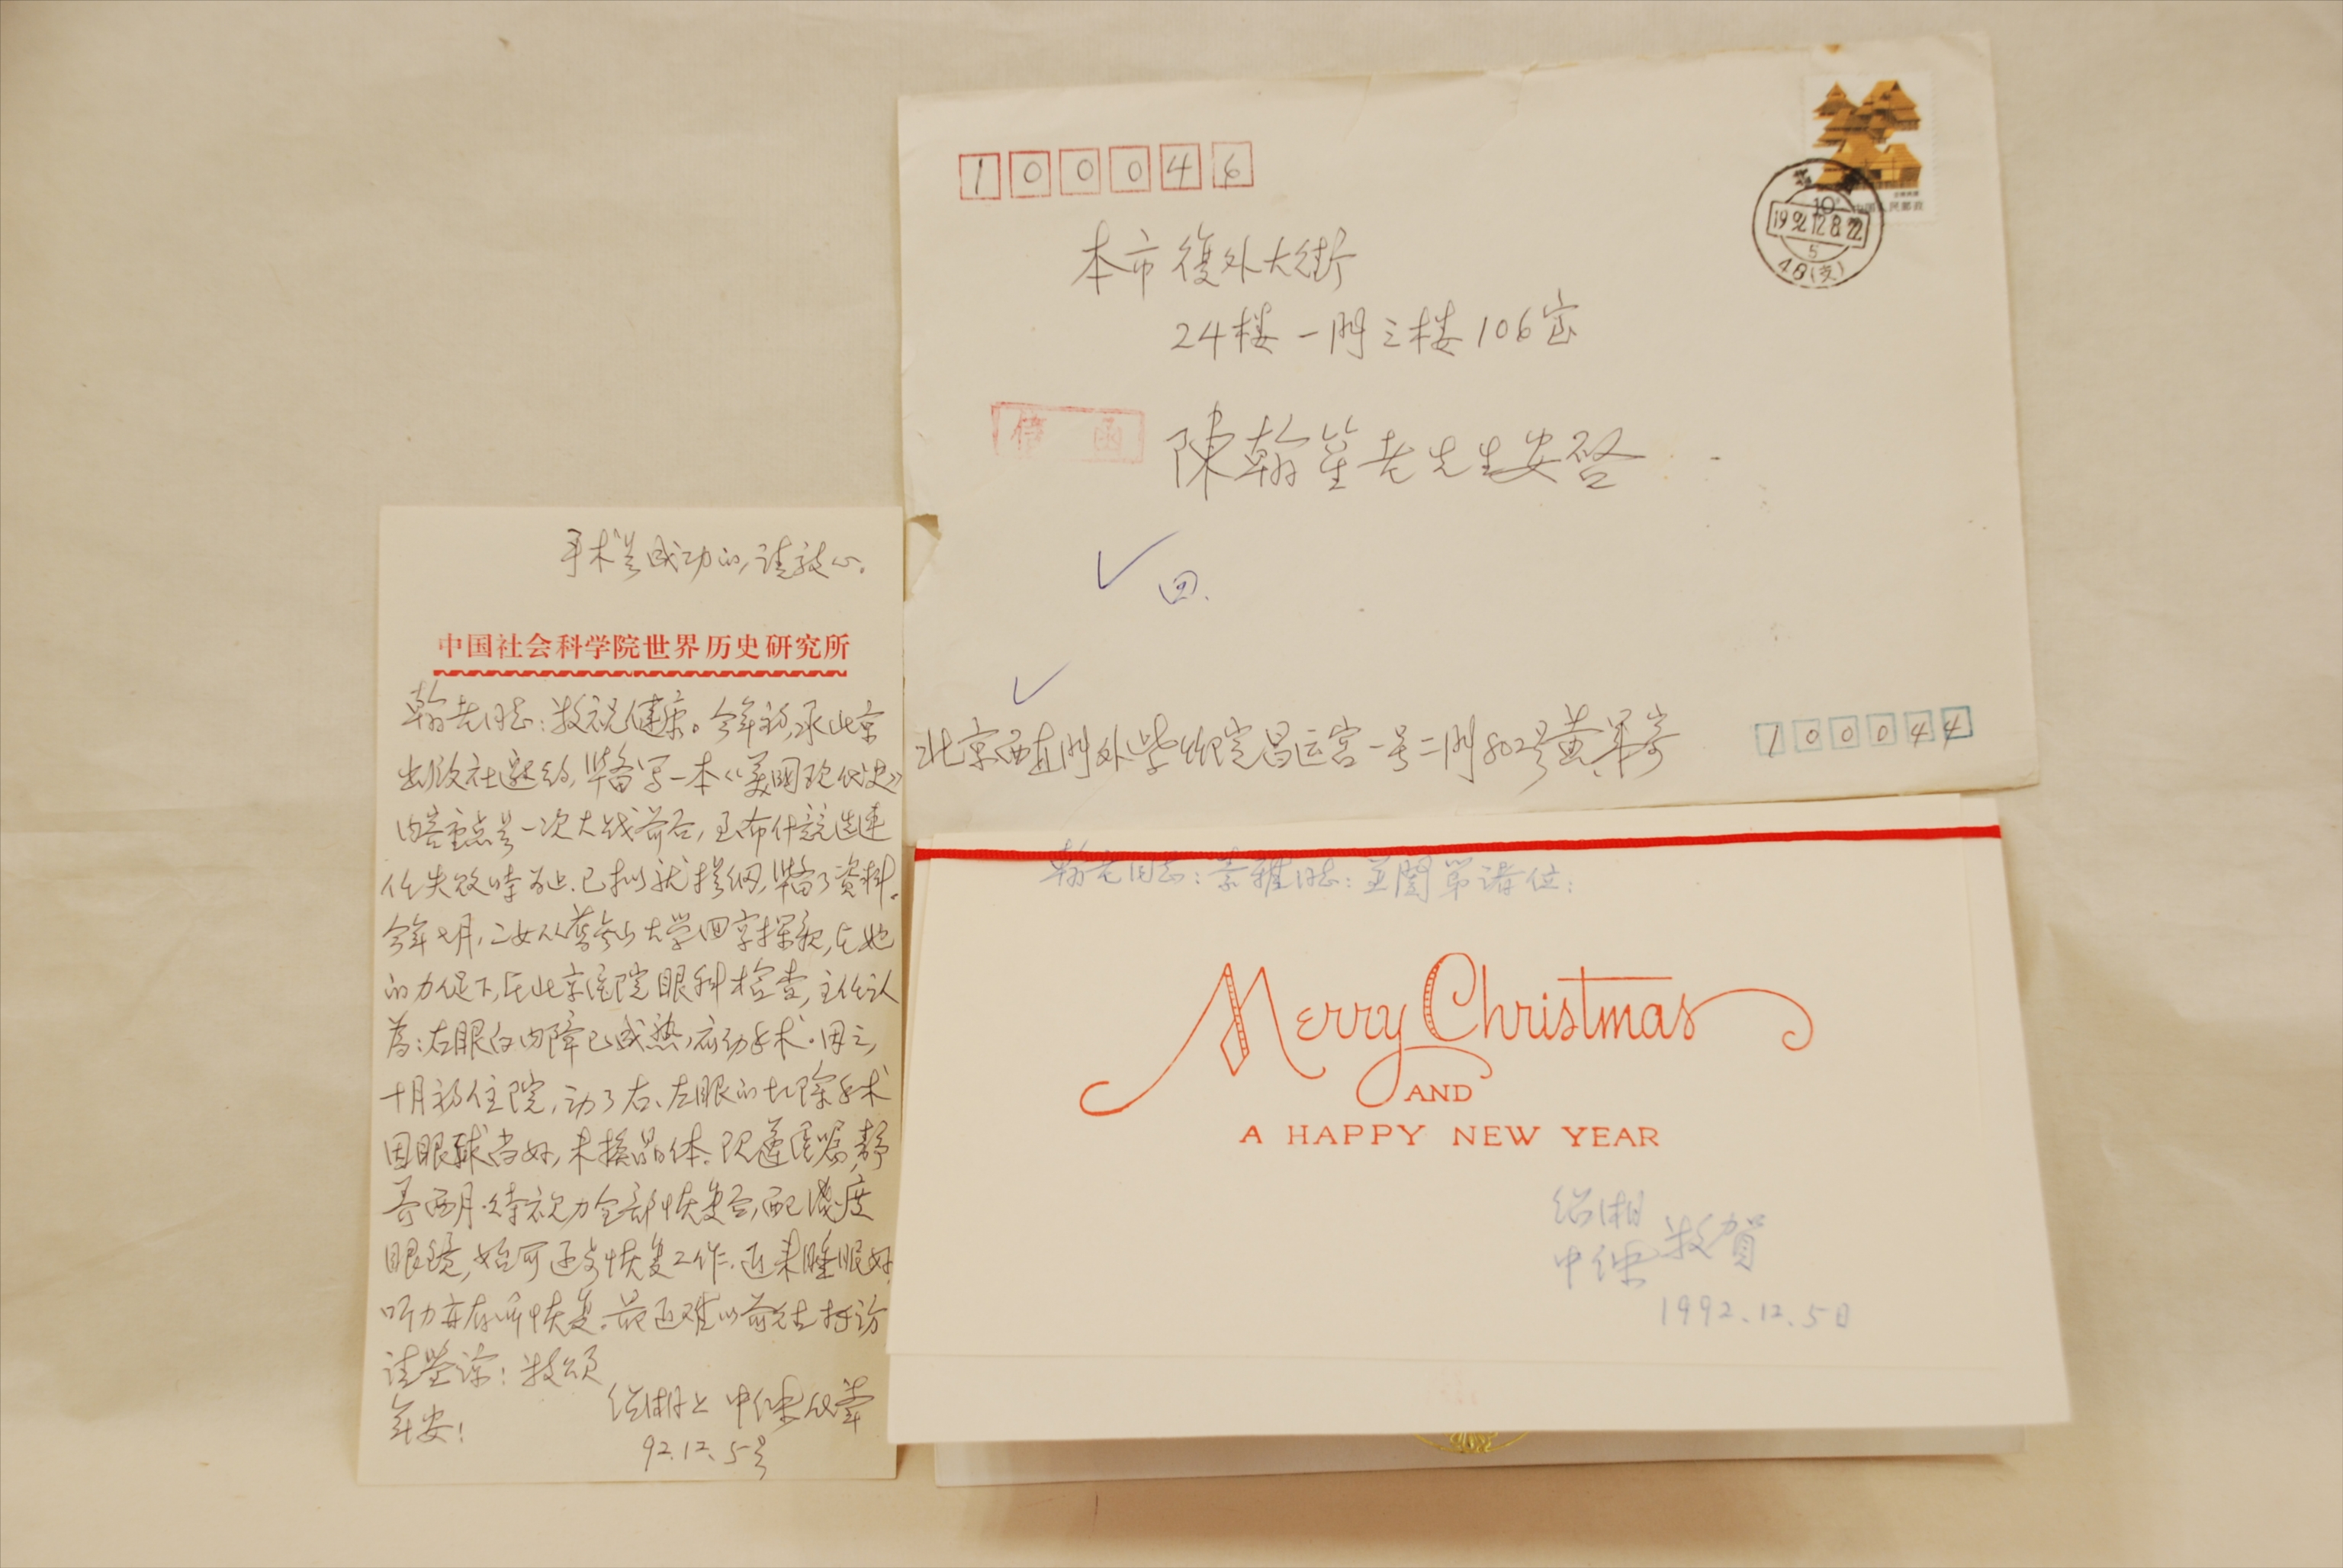 手术是成功的,请放心。
中国社会科学院世界历史研究所
翰老同志:敬祝健康。今年初,承北京
出版社邀约,準备写一本《美国现代史》
内容重点是一次大战前后,至布什竞选连
任失败時为止.已拟就提纲,準备了资料。
今年七月,二女从旧金山大学回京探亲,在她
的力促下,在北京医院眼科检查,主任认
为:右眼白内障已成熟,应动手术.因之,
十月初住院,动了右、左眼的切除手术
因眼球尚好,未换晶体。现遵医嘱,静
养两月.待视力全部恢复后,配浅度
眼镜,始可逐步恢复工作.近来睡眠好,
听力亦有所恢复。最近难以前往拜访
请鉴谅:敬颂
年安!
绍湘上 中倸
92.12.5号
100046
本市復外大街
24楼一門三楼106室
信函
陳翰笙老先生安啓
回.
北京西直門外紫竹院昌运宫一号二門802号黄寄
100044
10 中国人民邮政
1992.12.8.22
5
48(支)
翰老同志:素雅同志:並闔第诸位:
Merry Christmas
AND
A HAPPY NEW YEAR
绍湘
中倸 敬賀
1992.12.5日